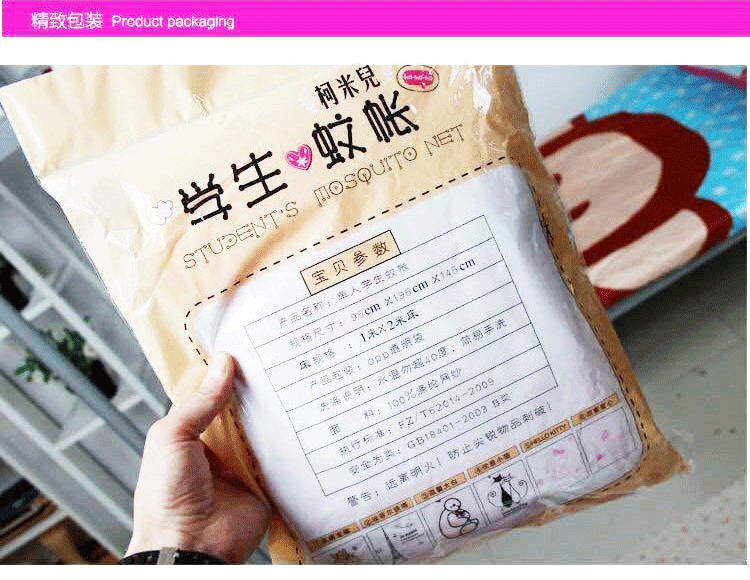 精致包装 Product packaging
柯米兒
学生 蚊帐
STUDENT'S MOSQUITO NET
宝贝参数
产品名称：单人学生蚊帐
规格尺寸：95cm X195cm X145cm
床规格：1米X2米床
产品包装：opp透明袋
洗涤说明：水温勿超40度，简易手洗
面 料：100%涤纶网纱
执行标准：FZ/T62014-2009
安全为类：GB18401-2003 B类
警告：远离明火！防止尖锐物品刺破！
HELLO KITTY